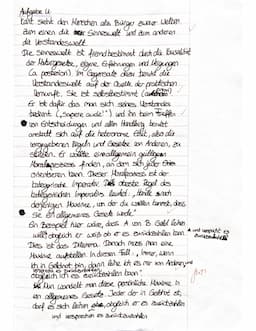 Aufgabe 4
Kant sieht den Menschen als Bürger zweier Welten
Zum einen die Sinneswelt und zum anderen
die Verstandeswelt.
Die Sinneswelt ist fremdbestimmt durch die Kausalität
der Naturgesetze, eigene Erfahrungen und Neigungen
(a posteriori). Im Gegensatz dazu beruht die
Verstandeswelt auf der Quelle der praktischen
Vernunft. Sie ist selbstbestimmt
Er ist dafür das man sich seines Verstandes
bedient ("sapere aude!") und ihn beim Treffen
von Entscheidungen und allen Handlung benutzt
anstatt sich auf die heteronome Ethik, also die
vorgegebenen Regeln und Gesetze von Anderen, zu
stützen. Er wollte einen allgemein gültigen
finden, an dem sich jeder
orientieren kann. Dieser ist der
kategorische Imperativ. Die oberste Regel des
kategorischen Imperativs lautet: "Handle nach
derjenigen Maxime, von der du wollen kannst, dass
Sie ein allgemeines Gesetz werde."
Ein Beispiel hier wäre, dass A von B Geld leihen
will obwohl er weiß ob er es zurückzahlen kann
und verspricht es zurückzuzahlen
Dies ist das Dilemma. Danach muss man eine
Maxime aufstellen. In diesem Fall: "Immer, wenn
ich in Geldnot bin, dann leihe ich es mir von Anderen und
verspreche es zurückzuzahlen
obwohl ich es zurückzahlen kann".
Nun wandelt man diese persönliche Maxime in
ein allgemeines Gesetz. Jeder der in Geldnot ist,
darf es sich leihen obwohl er es zurückzahlen
und versprechen es zurückzuzahlen